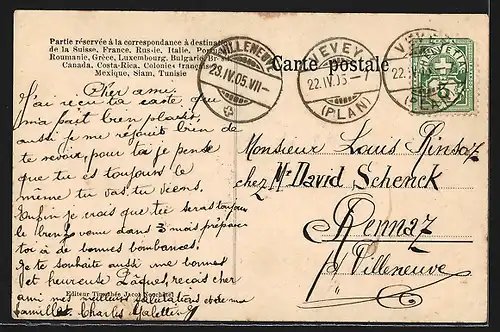 Partie réservée à la correspondance à destination
de la Suisse, France, Russie, Italie, Portugal,
Roumanie, Grèce, Luxembourg, Bulgarie, Brésil,
Canada, Costa-Rica, Colonies françaises
Mexique, Siam, Tunisie
VILLENEUVE
23.IV.05.VII-
VEVEY
22.IV.05-
(PLAN)
VEVEY
22.
(PLAN)
HELVETIA
5
Carte postale
Cher ami.
J'ai reçu ta carte que
m'a fait bien plaisir,
aussi je me réjouit bien de
te revoir, pour toi je pense
que tu es toujours le
même tu vas, tu viens.
Enfin je crois que tu seras toujours
le bien venu dans 3 mois, prépare
toi à de bonnes bombances.
Je te souhaite aussi une bonnes
et heureuse Pâques, reçois cher
ami mes meilleurs salutations de ma
famille. Charles
Editeur Timothée Jacot
Monsieur Louis
chez Mr David Schenck
Rennaz
p/ Villeneuve